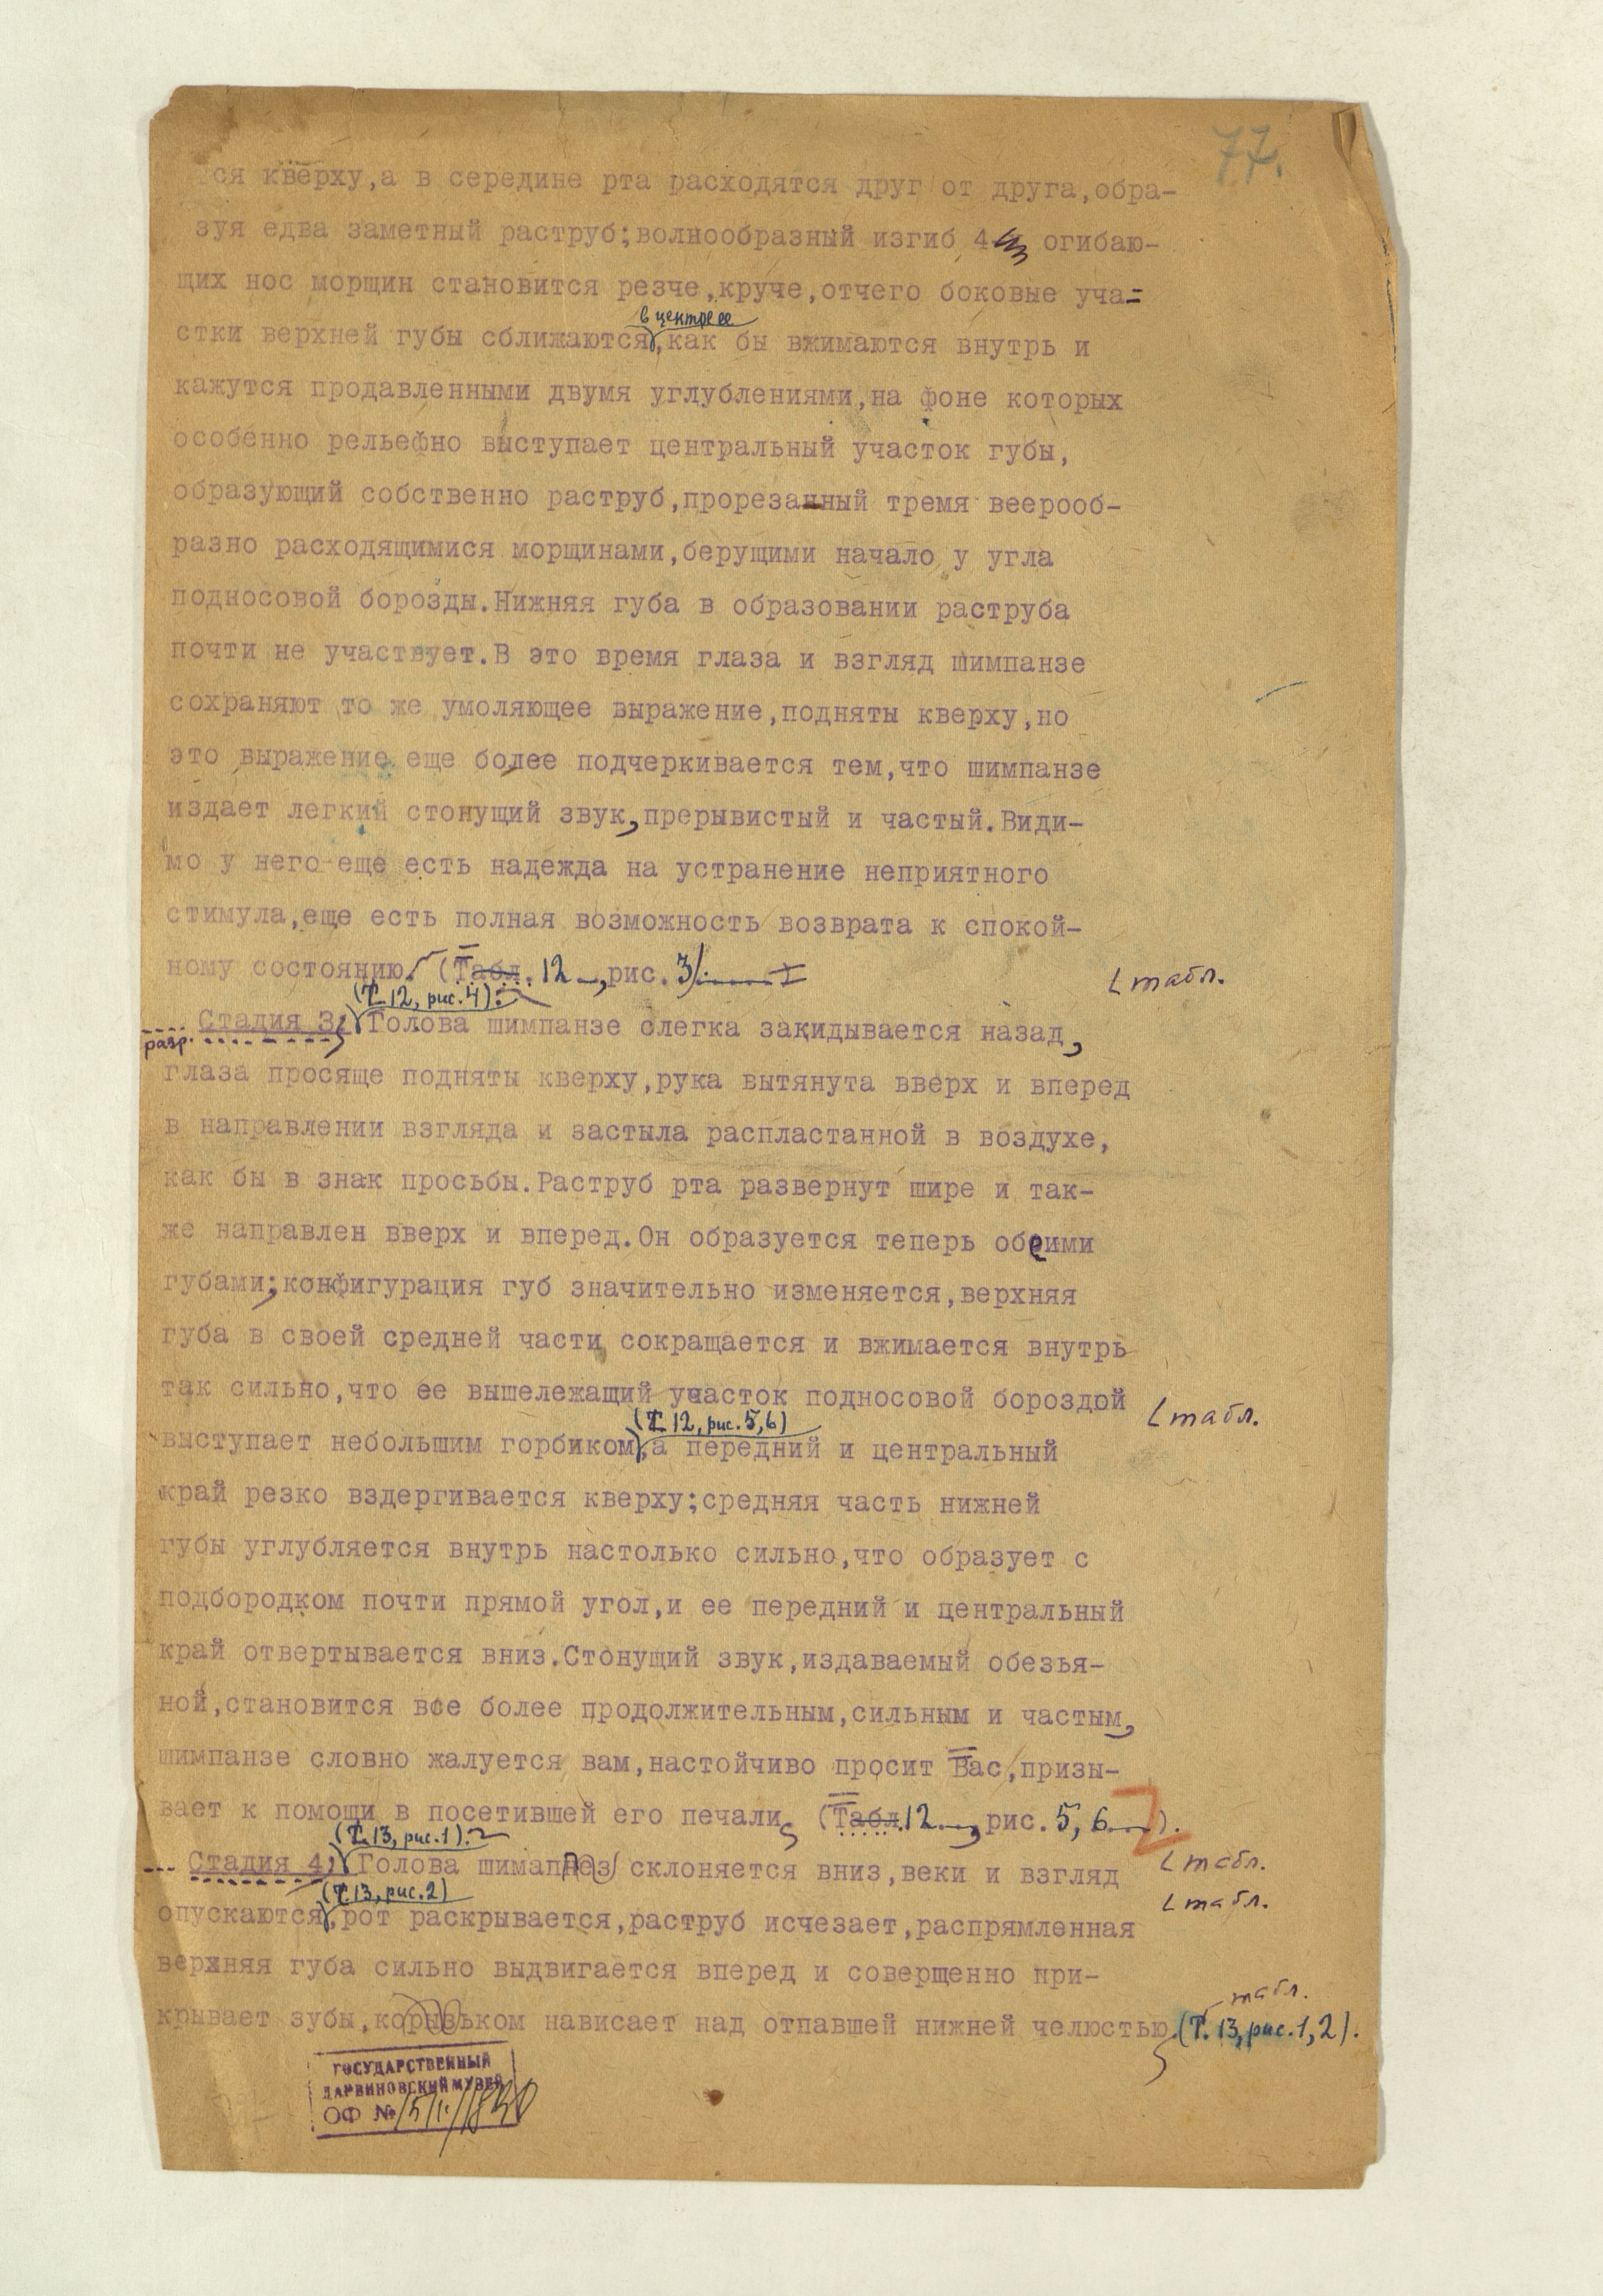 77.
тся кверху,а в середине рта расходятся друг от друга,обра-
зуя едва заметный раструб;волнообразный изгиб 4 огибаю-
щих нос морщин становится резче,круче,отчего боковые уча-
в центре ее
стки верхней губы сближаются,как бы вжимаются внутрь и
кажутся продавленными двумя углублениями,на фоне которых
особенно рельефно выступает центральный участок губы,
образующий собственно раструб,прорезанный тремя веерооб-
разно расходящимися морщинами,берущими начало у угла
подносовой борозды.Нижняя губа в образовании раструба
почти не участвует.В это время глаза и взгляд шимпанзе
сохраняют то же умоляющее выражение,подняты кверху,но
это выражение еще более подчеркивается тем,что шимпанзе
издает легкий стонущий звук,прерывистый и частый.Види-
мо у него еще есть надежда на устранение неприятного
стимула,еще есть полная возможность возврата к спокой-
ному состоянию. (Табл. 12, рис. 3)
табл.
(Т. 12, рис. 4).
разр. Стадия 3. Голова шимпанзе слегка закидывается назад,
глаза просяще подняты кверху,рука вытянута вверх и вперед
в направлении взгляда и застыла распластанной в воздухе,
как бы в знак просьбы.Раструб рта развернут шире и так-
же направлен вверх и вперед.Он образуется теперь обеими
губами;конфигурация губ значительно изменяется,верхняя
губа в своей средней части сокращается и вжимается внутрь
так сильно,что ее вышележащий участок подносовой бороздой
табл.
(Т. 12, рис. 5,6)
выступает небольшим горбиком,а передний и центральный
край резко вздергивается кверху;средняя часть нижней
губы углубляется внутрь настолько сильно,что образует с
подбородком почти прямой угол,и ее передний и центральный
край отвертывается вниз.Стонущий звук,издаваемый обезья-
ной,становится все более продолжительным,сильным и частым,
шимпанзе словно жалуется вам,настойчиво просит Вас,призы-
вает к помощи в посетившей его печали (Табл. 12, рис. 5, 6).
(Т. 13, рис. 1).
Стадия 4. Голова шимпанзе склоняется вниз,веки и взгляд
табл.
(Т. 13, рис. 2)
табл.
опускаются,рот раскрывается,раструб исчезает,распрямленная
верхняя губа сильно выдвигается вперед и совершенно при-
табл.
крывает зубы,козырьком нависает над отпавшей нижней челюстью (Т. 13, рис. 1, 2).
ГОСУДАРСТВЕННЫЙ
ДАРВИНОВСКИЙ МУЗЕЙ
ОФ №